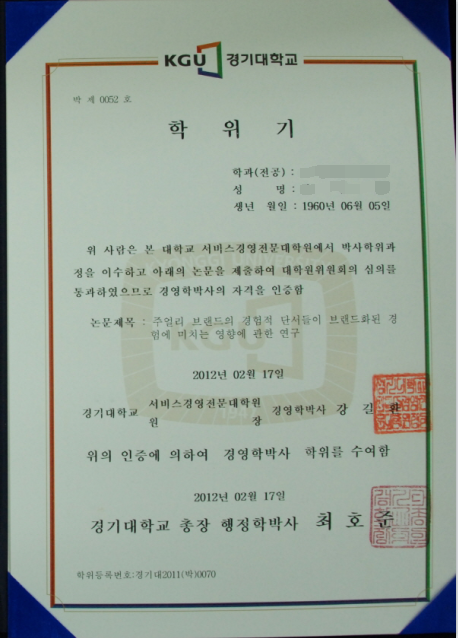 KGU 경기대학교
박 제 0052 호
학 위 기
학과(전공) :
성 명 :
생년 월일 : 1960년 06월 05일
위 사람은 본 대학교 서비스경영전문대학원에서 박사학위과
정을 이수하고 아래의 논문을 제출하여 대학원위원회의 심의를
통과하였으므로 경영학박사의 자격을 인증함
논문제목 : 주얼리 브랜드의 경험적 단서들이 브랜드화된 경
험에 미치는 영향에 관한 연구
2012년 02월 17일
경기대학교 서비스경영전문대학원 경영학박사 강 길 환
원 장
위의 인증에 의하여 경영학박사 학위를 수여함
2012년 02월 17일
경기대학교 총장 행정학박사 최 호 준
학위등록번호:경기대2011(박)0070
KGU